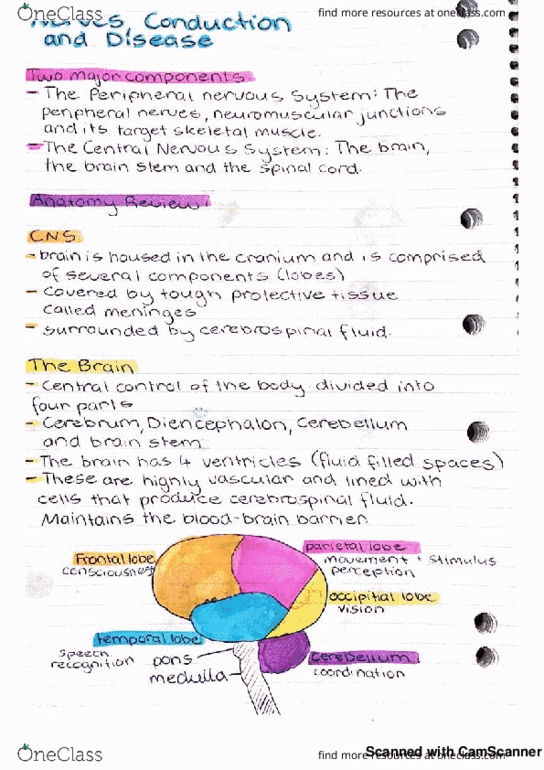 OneClass
find more resources at oneclass.com
OneClass
Nerves, Conduction
and Disease
Two major components
- The Peripheral nervous System: The
peripheral nerves, neuromuscular junctions
and its target skeletal muscle.
- The Central Nervous System: The brain,
the brain stem and the spinal cord.
Anatomy Review
CNS
- brain is housed in the cranium and is comprised
of several components (lobes)
- Covered by tough protective tissue
called meninges
- surrounded by cerebrospinal fluid.
The Brain
- Central control of the body divided into
four parts
- Cerebrum, Diencephalon, Cerebellum
and brain stem
- The brain has 4 ventricles (fluid filled spaces)
- These are highly vascular and lined with
cells that produce cerebrospinal fluid.
Maintains the blood-brain barrier
Frontal lobe
consciousness
parietal lobe
movement + stimulus
perception
occipitial lobe
vision
temporal lobe
speech
recognition
pons
medulla
Cerebellum
coordination
OneClass
find more resources at oneclass.com
Scanned with CamScanner